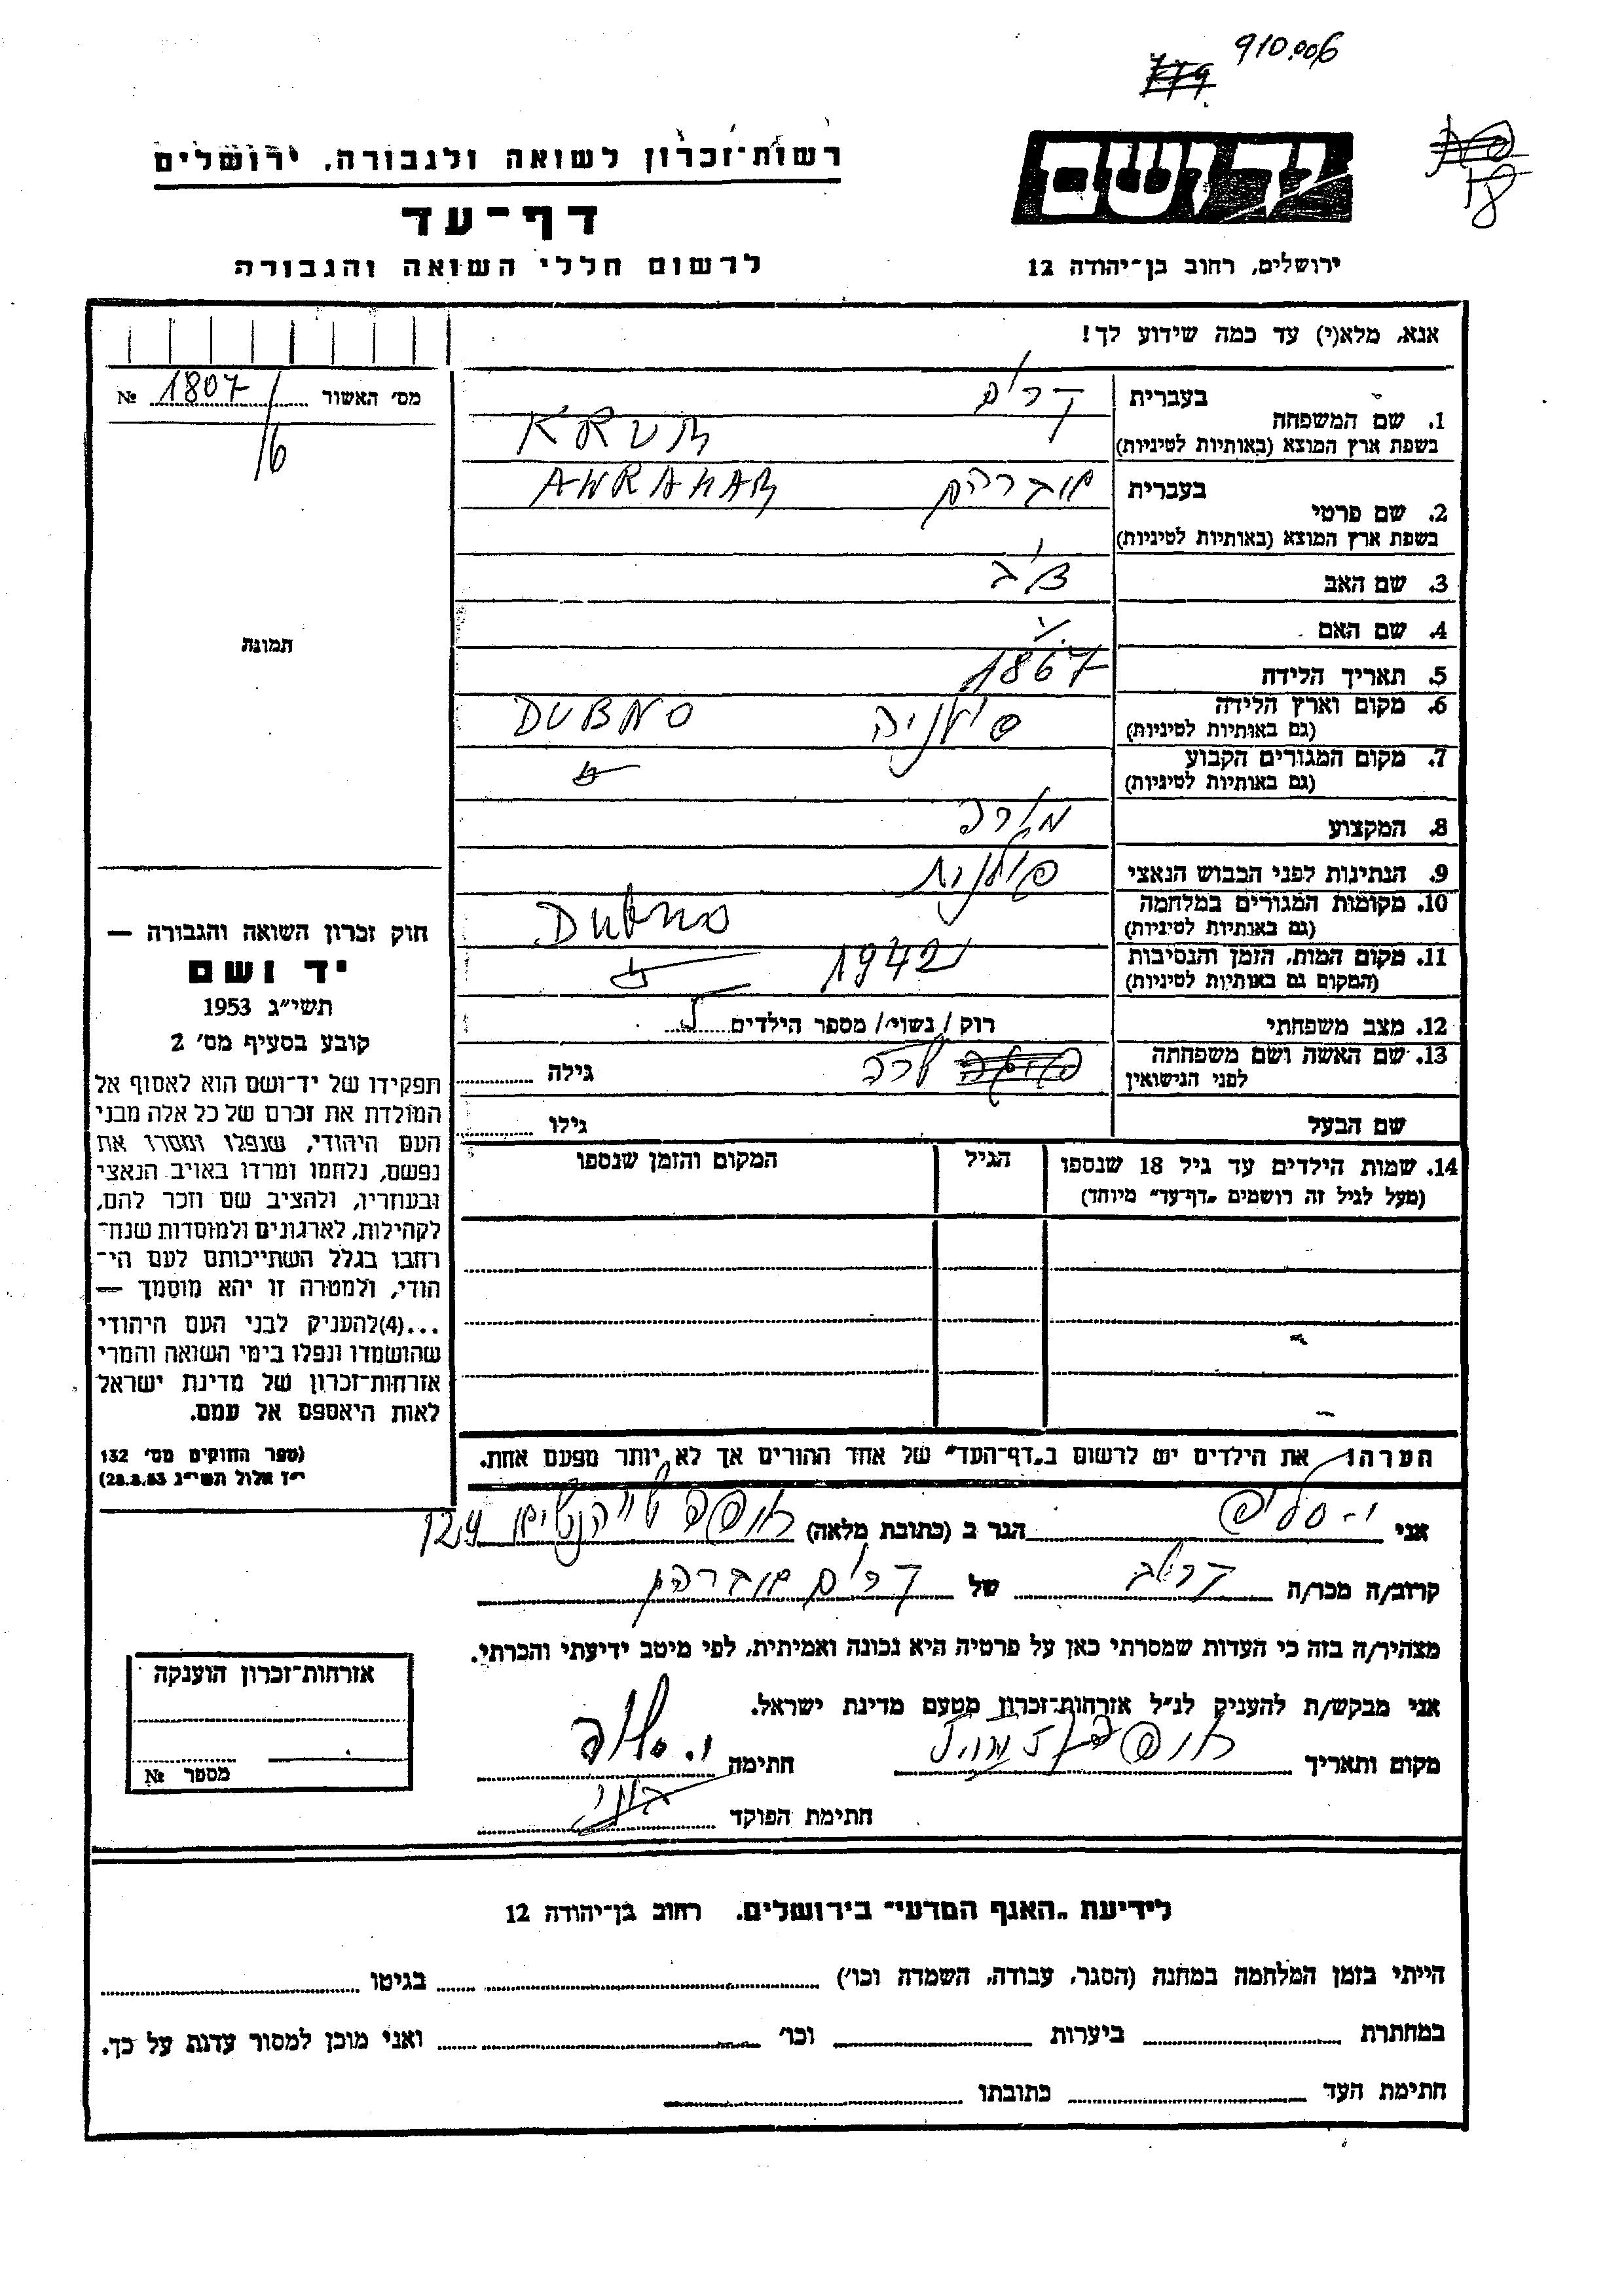 910.006
18
רשות־זכרון לשואה ולגבורה, ירושלים
דף־עד
לרשום חללי השואה והגבורה
יד ושם
ירושלים, רחוב בן־יהודה 12
אנא, מלא(י) עד כמה שידוע לך!
מס' האשור 1807 №
16
תמונה
1. שם המשפחה בעברית קרום
בשפת ארץ המוצא (באותיות לטיניות) KRUM
2. שם פרטי בעברית אברהם AWRAHAM
בשפת ארץ המוצא (באותיות לטיניות)
3. שם האב
4. שם האם
5. תאריך הלידה 1867
6. מקום וארץ הלידה פולניה DUBNO
(גם באותיות לטיניות)
7. מקום המגורים הקבוע
(גם באותיות לטיניות)
8. המקצוע מורה
9. הנתינות לפני הכבוש הנאצי פולנית
10. מקומות המגורים במלחמה Dubno
(גם באותיות לטיניות)
11. מקום המות, הזמן והנסיבות 1942
(המקום גם באותיות לטיניות)
12. מצב משפחתי רוק / נשוי / מספר הילדים
13. שם האשה ושם משפחתה שרה גילה
לפני הנישואין
שם הבעל גילו
14. שמות הילדים עד גיל 18 שנספו הגיל המקום והזמן שנספו
(מעל לגיל זה רושמים "דף־עד" מיוחד)
הערה: את הילדים יש לרשום ב"דף־העד" של אחד ההורים אך לא יותר מפעם אחת.
חוק זכרון השואה והגבורה —
יד ושם
תשי"ג 1953
קובע בסעיף מס' 2
תפקידו של יד־ושם הוא לאסוף אל
המולדת את זכרם של כל אלה מבני
העם היהודי, שנפלו ומסרו את
נפשם, נלחמו ומרדו באויב הנאצי
ובעוזריו, ולהציב שם וזכר להם,
לקהילות, לארגונים ולמוסדות שנח־
רבו בגלל השתייכותם לעם הי־
הודי, ולמטרה זו יהא מוסמך —
...(4)להעניק לבני העם היהודי
שהושמדו ונפלו בימי השואה והמרי
אזרחות־זכרון של מדינת ישראל
לאות היאספם אל עמם.
(ספר החוקים מס' 132
י"ז אלול תשי"ג 28.8.53)
אני הגר ב (כתובת מלאה)
קרוב/ה מכר/ה קרוב של קרום אברהם
מצהיר/ה בזה כי העדות שמסרתי כאן על פרטיה היא נכונה ואמיתית, לפי מיטב ידיעתי והכרתי.
אני מבקש/ת להעניק לנ"ל אזרחות־זכרון מטעם מדינת ישראל.
מקום ותאריך חתימה
חתימת הפוקד
אזרחות־זכרון הוענקה
מספר №
לידיעת "האגף המדעי" בירושלים. רחוב בן־יהודה 12
הייתי בזמן המלחמה במחנה (הסגר, עבודה, השמדה וכו') בגיטו
במחתרת ביערות וכו' ואני מוכן למסור עדות על כך.
חתימת העד כתובתו